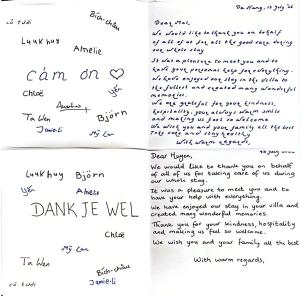 Bích-châu
cô tươi
Luuk huy
Amelie
cám ơn ♡
Chloë
Yến
+
Björn
Ta Wen
Jamie-Li
Mỹ Lan
Da Nang, 13 July '16
Dear Mai,
We would like to thank you on behalf
of all of us for all the good care during
our whole stay.
It was a pleasure to meet you and to
have your personal help for everything.
We have enjoyed our stay in the villa to
the fullest and created many wonderful
memories.
We are grateful for your kindness,
hospitality, your always warm smile
and making us feel so welcome
We wish you and your family all the best
Take care and stay healthy
With warm regards,
Luuk huy
Björn
Yến
Amelie
DANK JE WEL
Chloë
Mỹ Lan
Ta Wen
Bích-châu
cô tươi
Jamie-Li
Dear Huyen,
We would like to thank you on behalf
of all of us for taking care of us during
our whole stay.
It was a pleasure to meet you and to
have your help with everything.
We have enjoyed our stay in your villa and
created many wonderful memories.
Thank you for your kindness, hospitality
and making us feel so welcome.
We wish you and your family all the best
With warm regards,